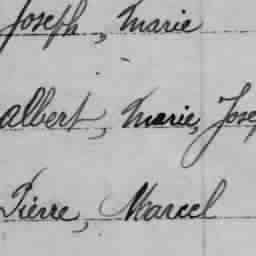 Joseph, Marie
Albert, Marie, Jose
Pierre, Marcel